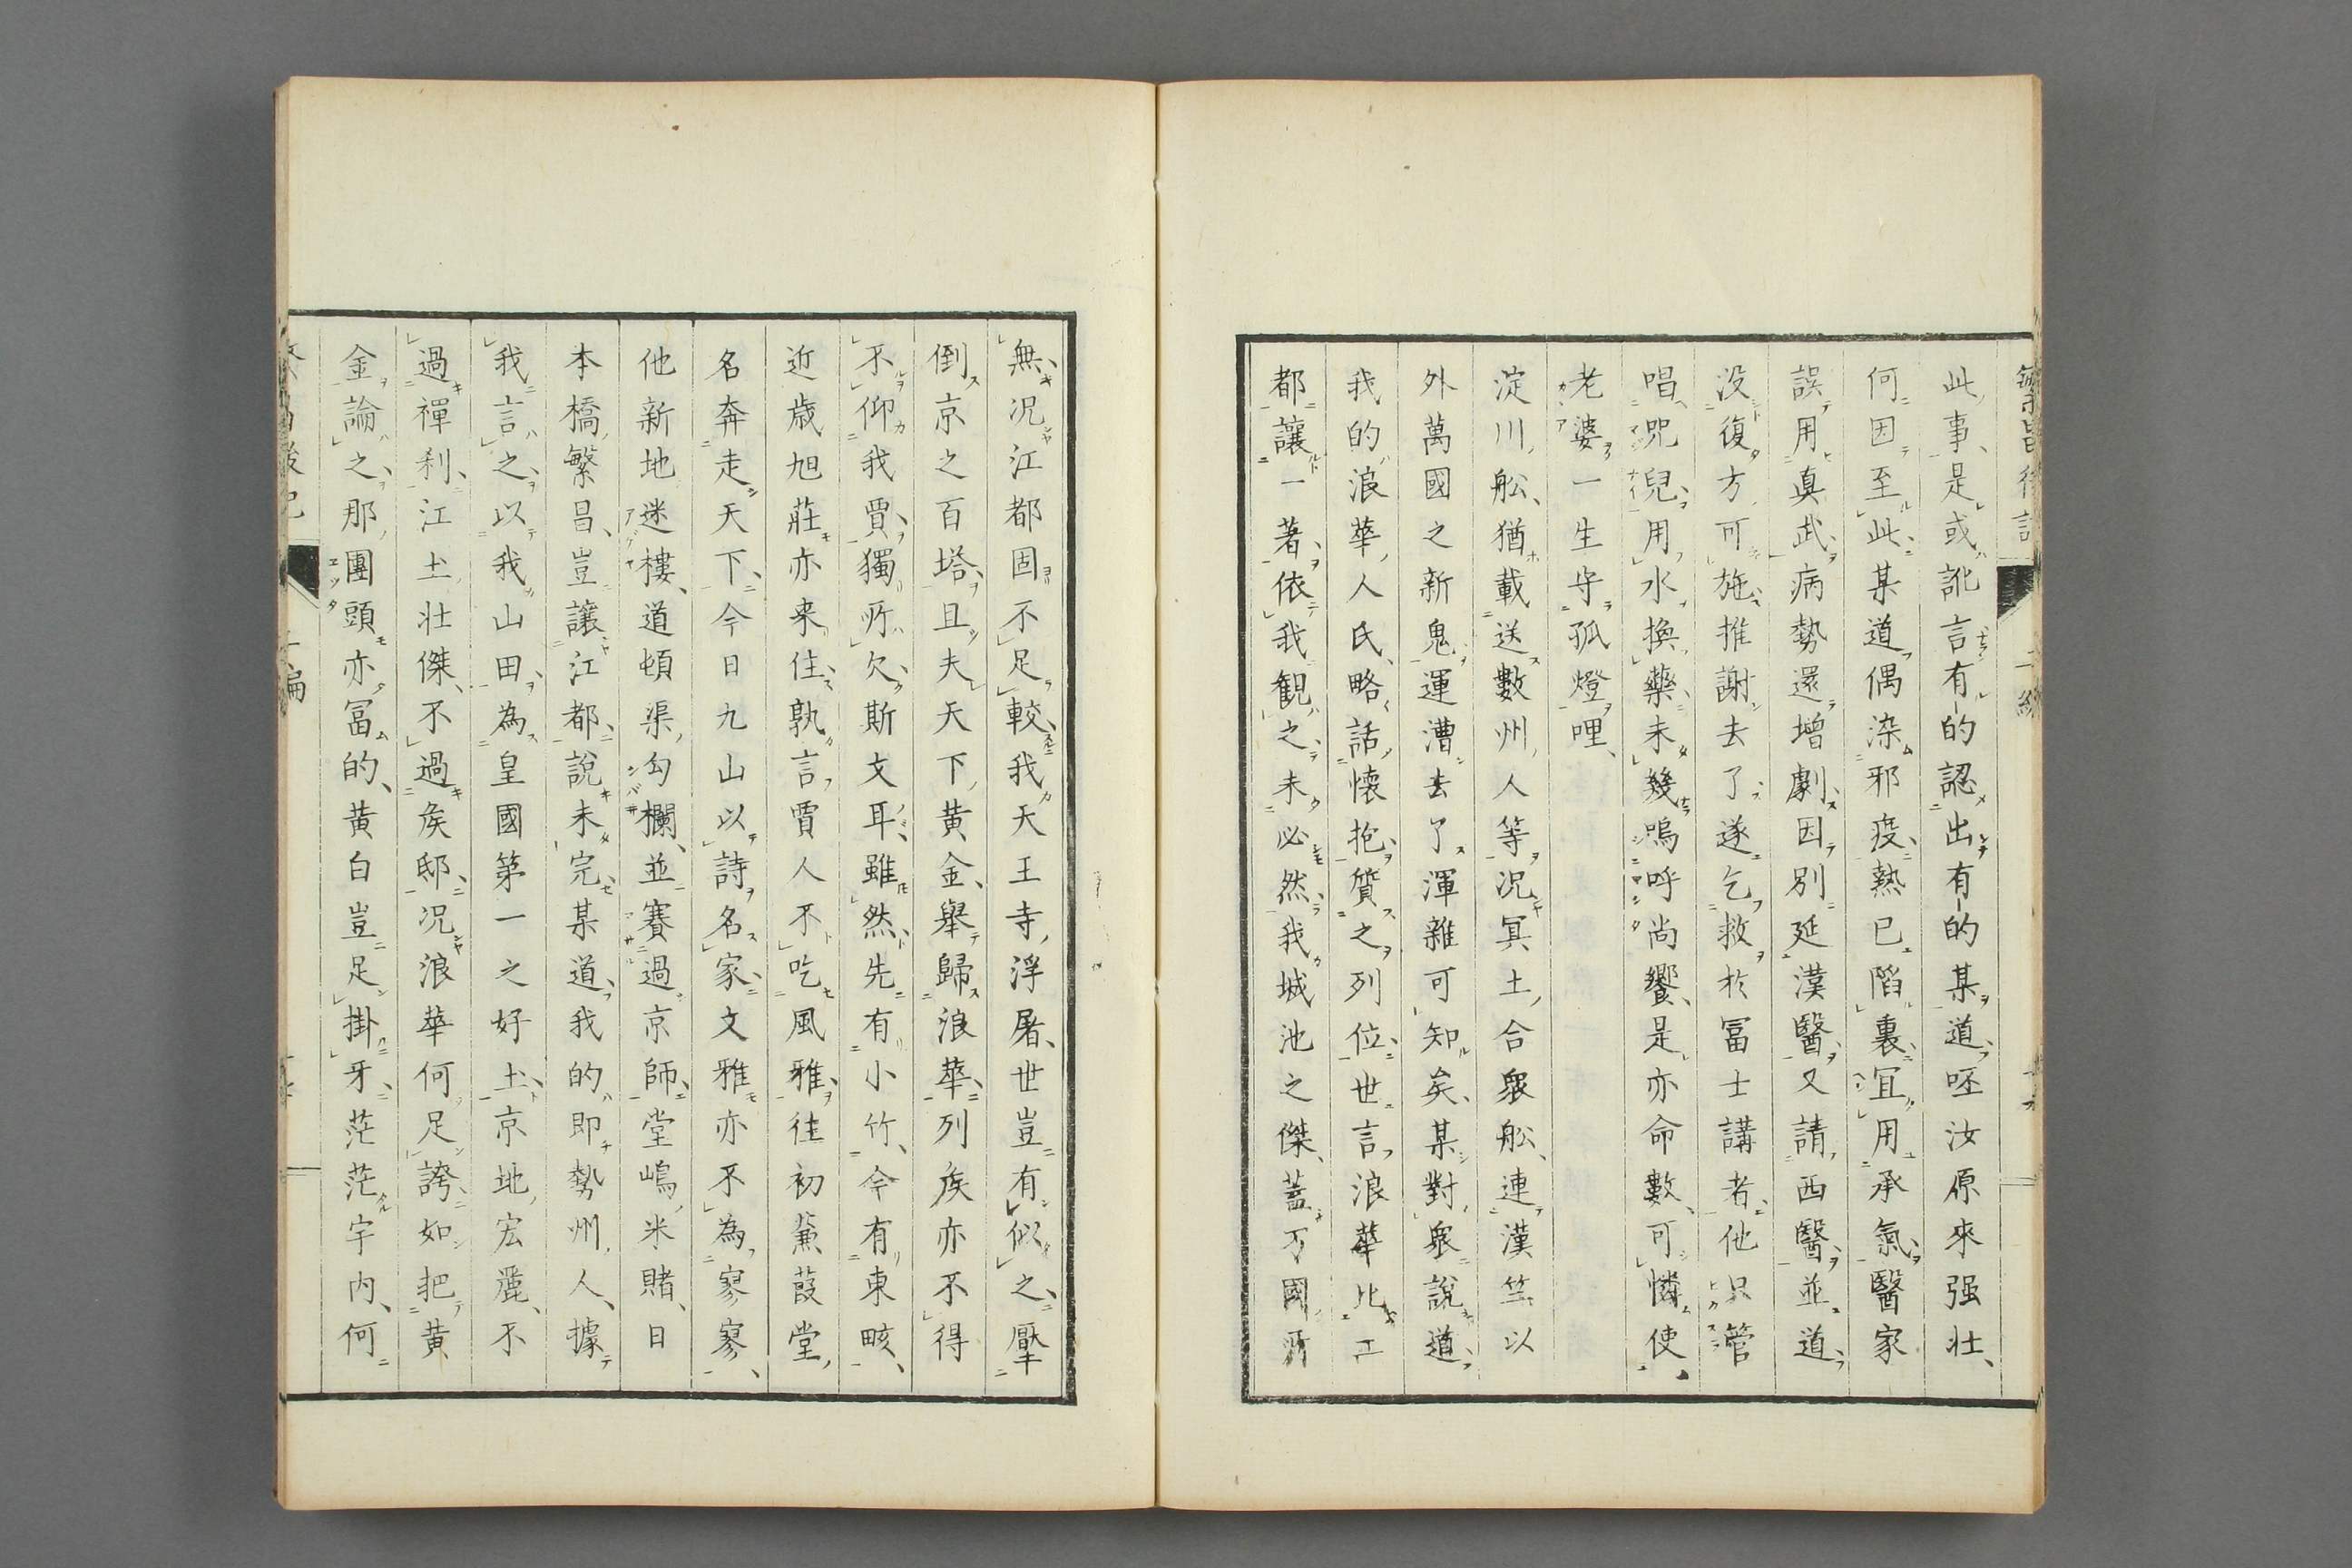 此事是或訛言有的認出有的某道呸汝原來强壮、
何因至此某道偶染邪疫熱已陷裏宜用承氣醫家
誤用真武病勢還增劇因別延漢醫又請西醫並道
没復方可施推謝去了遂乞救於冨士講者他只管
唱咒兒用水換藥未幾嗚呼尚饗是亦命數可憐使
老婆一生守孤燈哩、
淀川舩猶載送數州人等况冥土合衆舩連漢竺以
外萬國之新鬼運漕去了渾雜可知矣某對衆說道
我的浪華人民略話懐抱質之列位世言浪華比江
都讓一著依我観之未必然我城池之傑蓋万國所
無况江都固不足較我天王寺浮屠世豈有似之壓
倒京之百塔且夫天下黄金舉歸浪華列矦亦不得
不仰我賈獨所欠斯文耳雖然先有小竹今有東畡、
近歳旭莊亦来住孰言賈人不吃風雅往初蒹葭堂
名奔走天下今日九山以詩名家文雅亦不為寥寥、
他新地迷樓道頓渠勾欄並賽過京師堂嶋米賭日
本橋繁昌豈讓江都説未完某道我的即勢州人據
我言之以我山田為皇國第一之好土京地宏麗不
過禪刹江土壮傑不過矦邸况浪華何足誇如把黄
金論之那團頭亦冨的黄白豈足掛牙茫茫宇内何